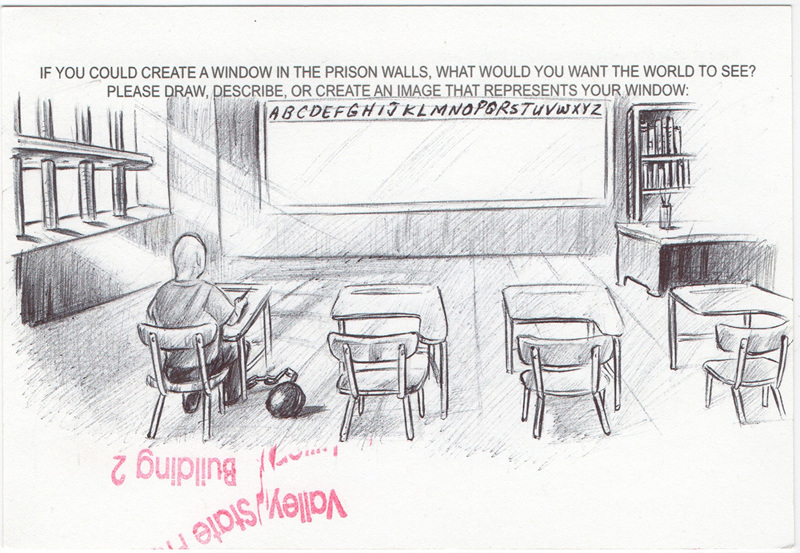 IF YOU COULD CREATE A WINDOW IN THE PRISON WALLS, WHAT WOULD YOU WANT THE WORLD TO SEE?
PLEASE DRAW, DESCRIBE, OR CREATE AN IMAGE THAT REPRESENTS YOUR WINDOW:
ABCDEFGHIJKLMNOPQRSTUVWXYZ
Valley State
Building 2